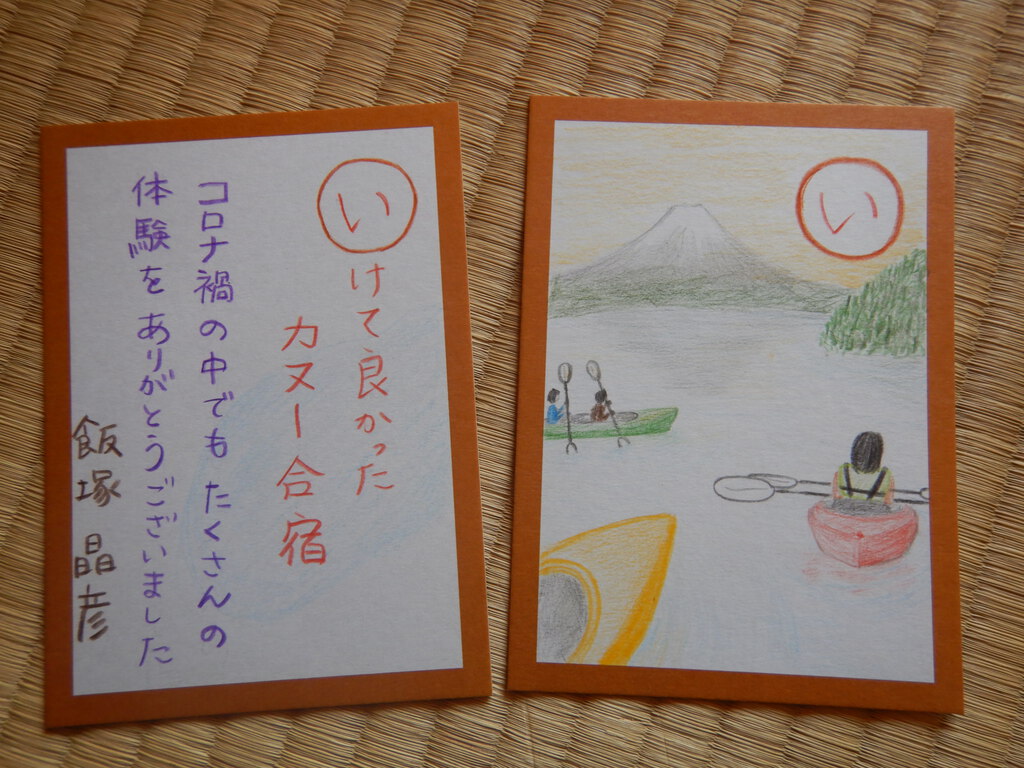 いけて良かった
カヌー合宿
コロナ禍の中でもたくさんの
体験をありがとうございました
飯塚 晶彦
い